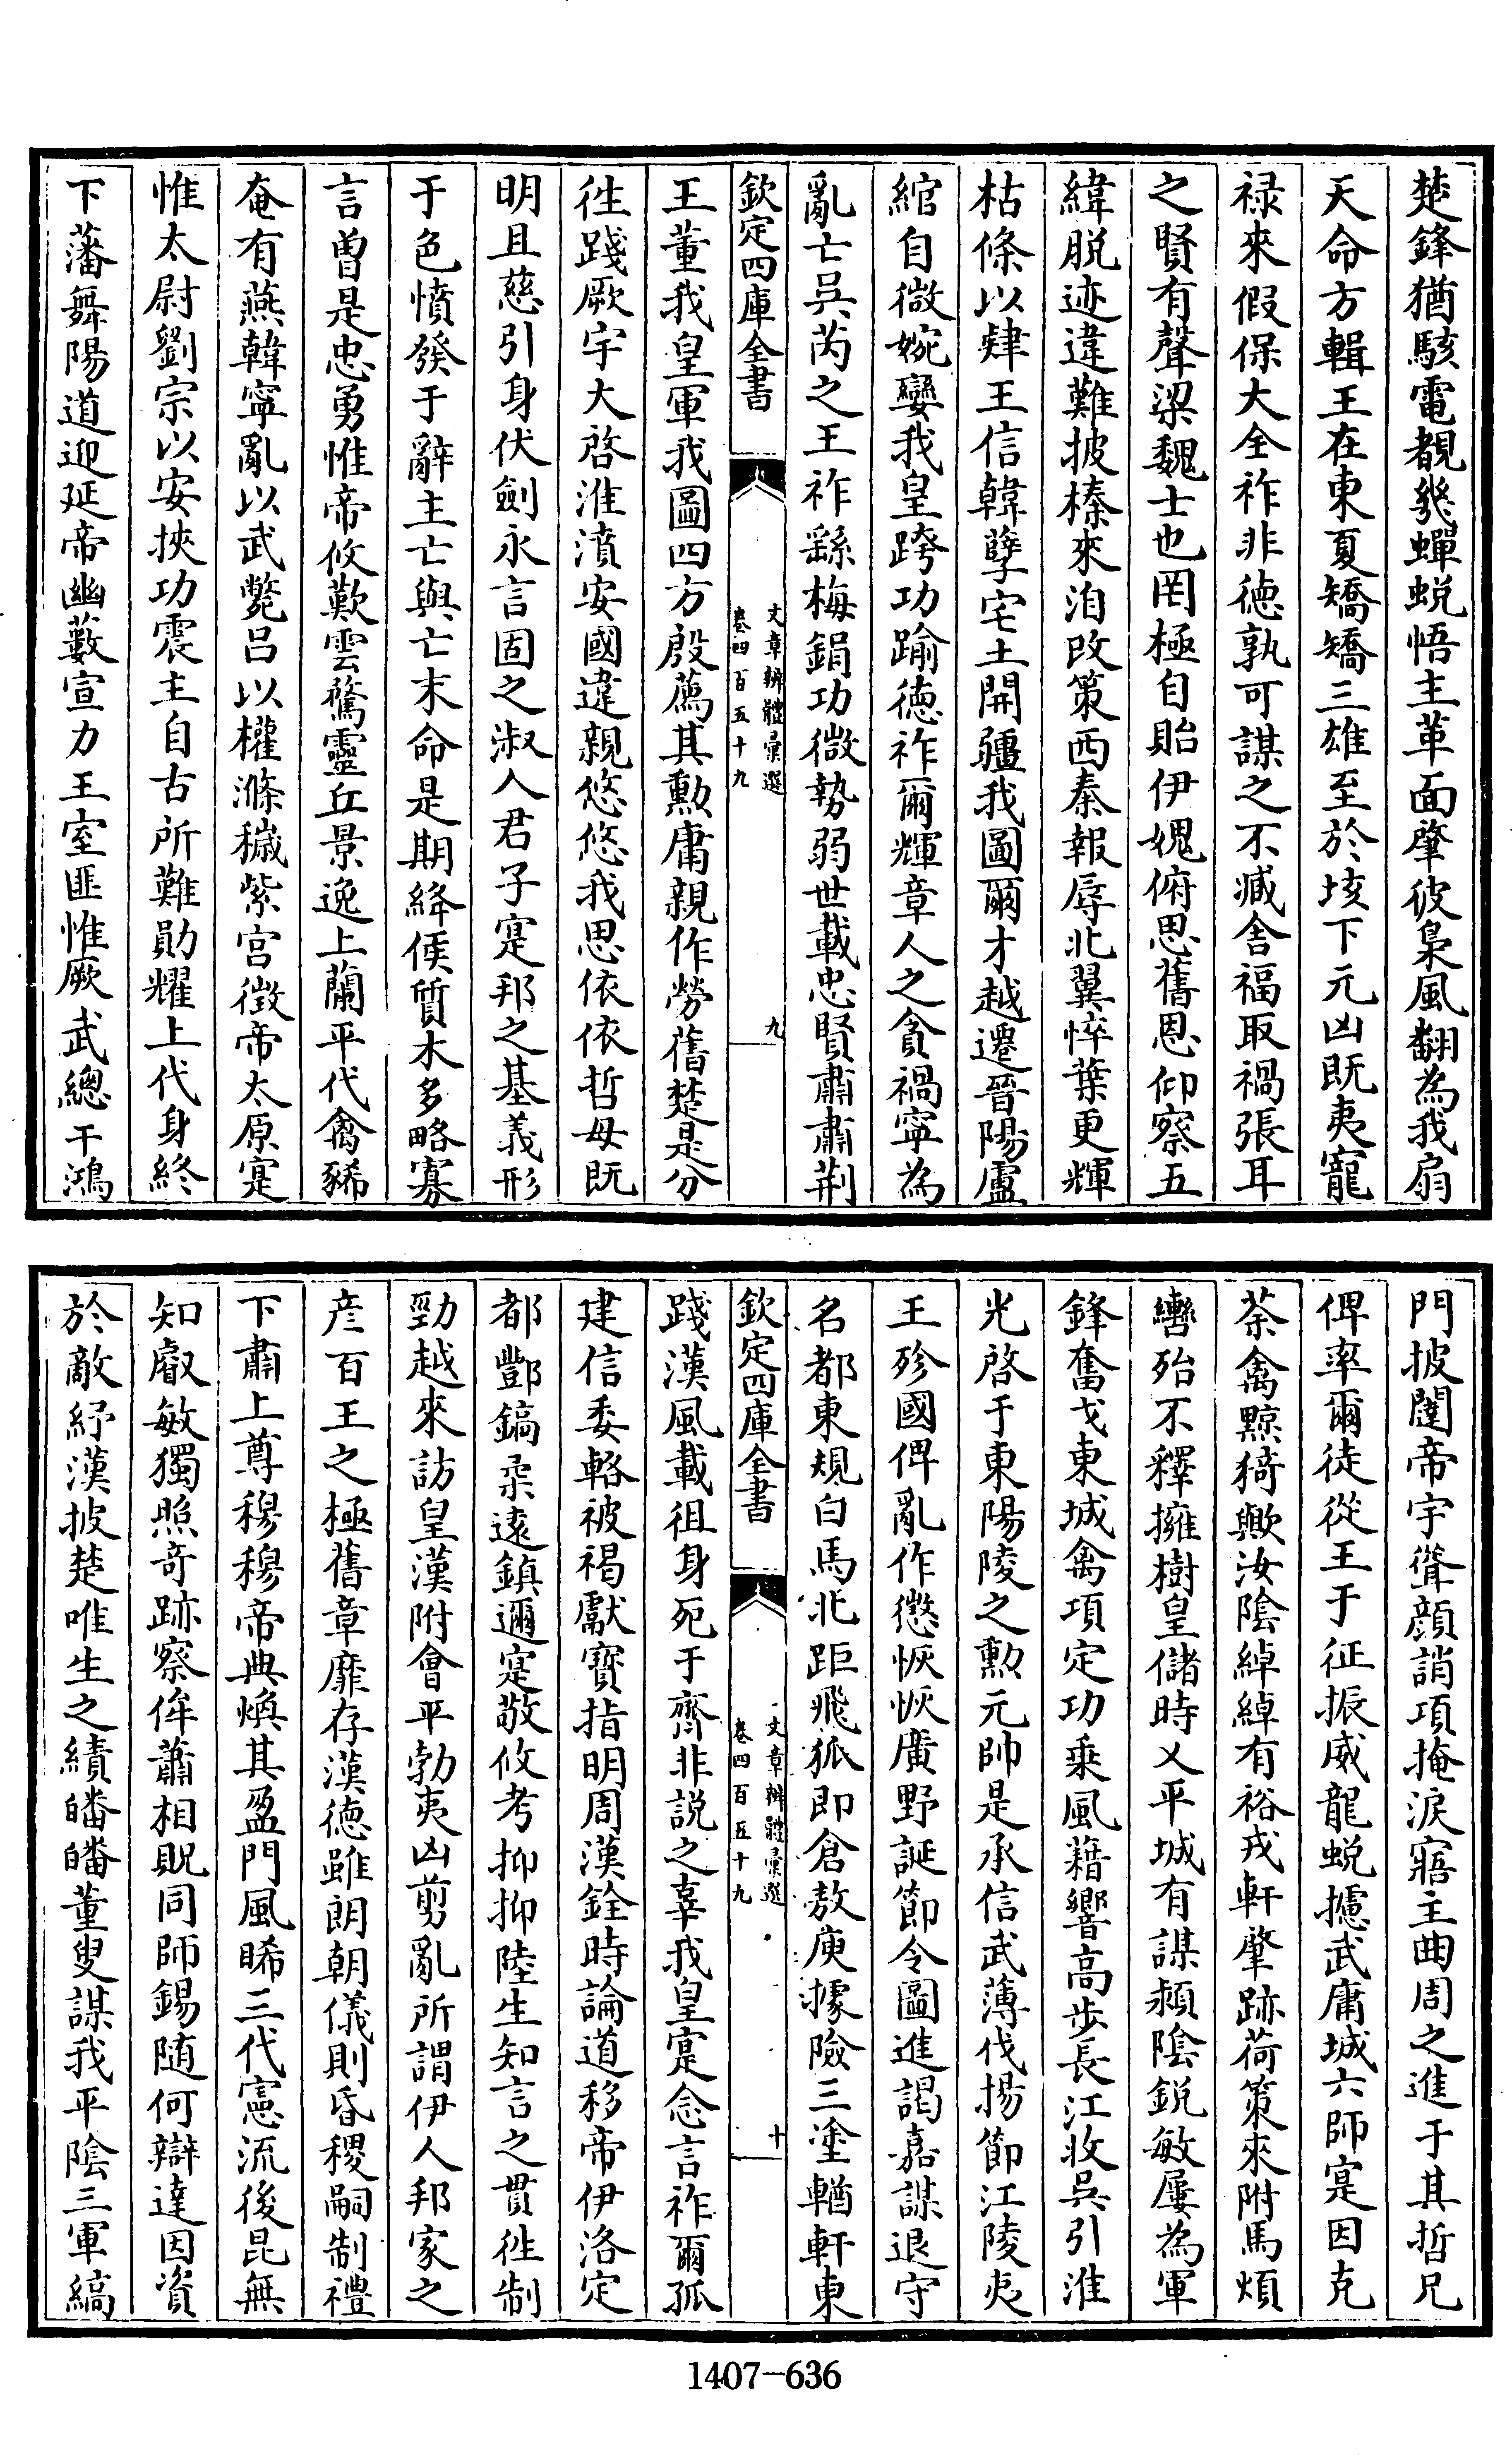 楚鋒猶駭電覩幾蟬蛻悟主革面肇彼梟風翻為我扇
天命方輯王在東夏矯矯三雄至於垓下元凶既夷寵
禄來假保大全祚非徳孰可謀之不臧舎福取禍張耳
之賢有聲梁魏士也罔極自貽伊媿俯思舊恩仰察五
緯脱迹違難披榛來洎改策西秦報辱北冀悴葉更輝
枯條以肄王信韓孽宅土開疆我圖爾才越遷晉陽盧
綰自微婉孌我皇跨功踰徳祚爾輝章人之貪禍寧為
亂亡吳芮之王祚繇梅鋗功微勢弱世載忠賢肅肅荆
欽定四庫全書
文章辨體彙選
卷四百五十九
九
王董我皇軍我圖四方殷薦其勲庸親作勞舊楚是分
徃踐厥宇大啓淮濆安國違親悠悠我思依依哲母既
明且慈引身伏劍永言固之淑人君子寔邦之基義形
于色憤發于辭主亡與亡末命是期絳侯質木多略寡
言曽是忠勇惟帝攸歎雲騖靈丘景逸上蘭平代禽豨
奄有燕韓寧亂以武斃呂以權滌穢紫宫徴帝太原寔
惟太尉劉宗以安挾功震主自古所難勛耀上代身終
下藩舞陽道迎延帝幽藪宣力王室匪惟厥武總干鴻
門披闥帝宇聳顔誚項掩淚寤主曲周之進于其哲兄
俾率爾徒從王于征振威龍蛻攄武庸城六師寔因克
荼禽黥猗歟汝隂綽綽有裕戎軒肇跡荷策來附馬煩
轡殆不釋擁樹皇儲時乂平城有謀潁隂鋭敏屢為軍
鋒奮戈東城禽項定功乗風藉響高步長江收吳引淮
光啓于東陽陵之勲元帥是承信武薄伐揚節江陵夷
王殄國俾亂作懲恢恢廣野誕節令圖進謁嘉謀退守
名都東規白馬北距飛狐即倉敖庾據險三塗輶軒東
欽定四庫全書
文章辨體彙選
卷四百五十九
十
踐漢風載徂身死于齊非説之辜我皇寔念言祚爾孤
建信委輅被褐獻寳指明周漢銓時論道移帝伊洛定
都酆鎬柔逺鎮邇寔敬攸考抑抑陸生知言之貫徃制
勁越來訪皇漢附會平勃夷凶剪亂所謂伊人邦家之
彦百王之極舊章靡存漢徳雖朗朝儀則昏稷嗣制禮
下肅上尊穆穆帝典煥其盈門風睎三代憲流後昆無
知叡敏獨照竒跡察侔蕭相貺同師錫随何辯達因資
於敵紓漢披楚唯生之績皤皤董叟謀我平隂三軍縞
1407-636